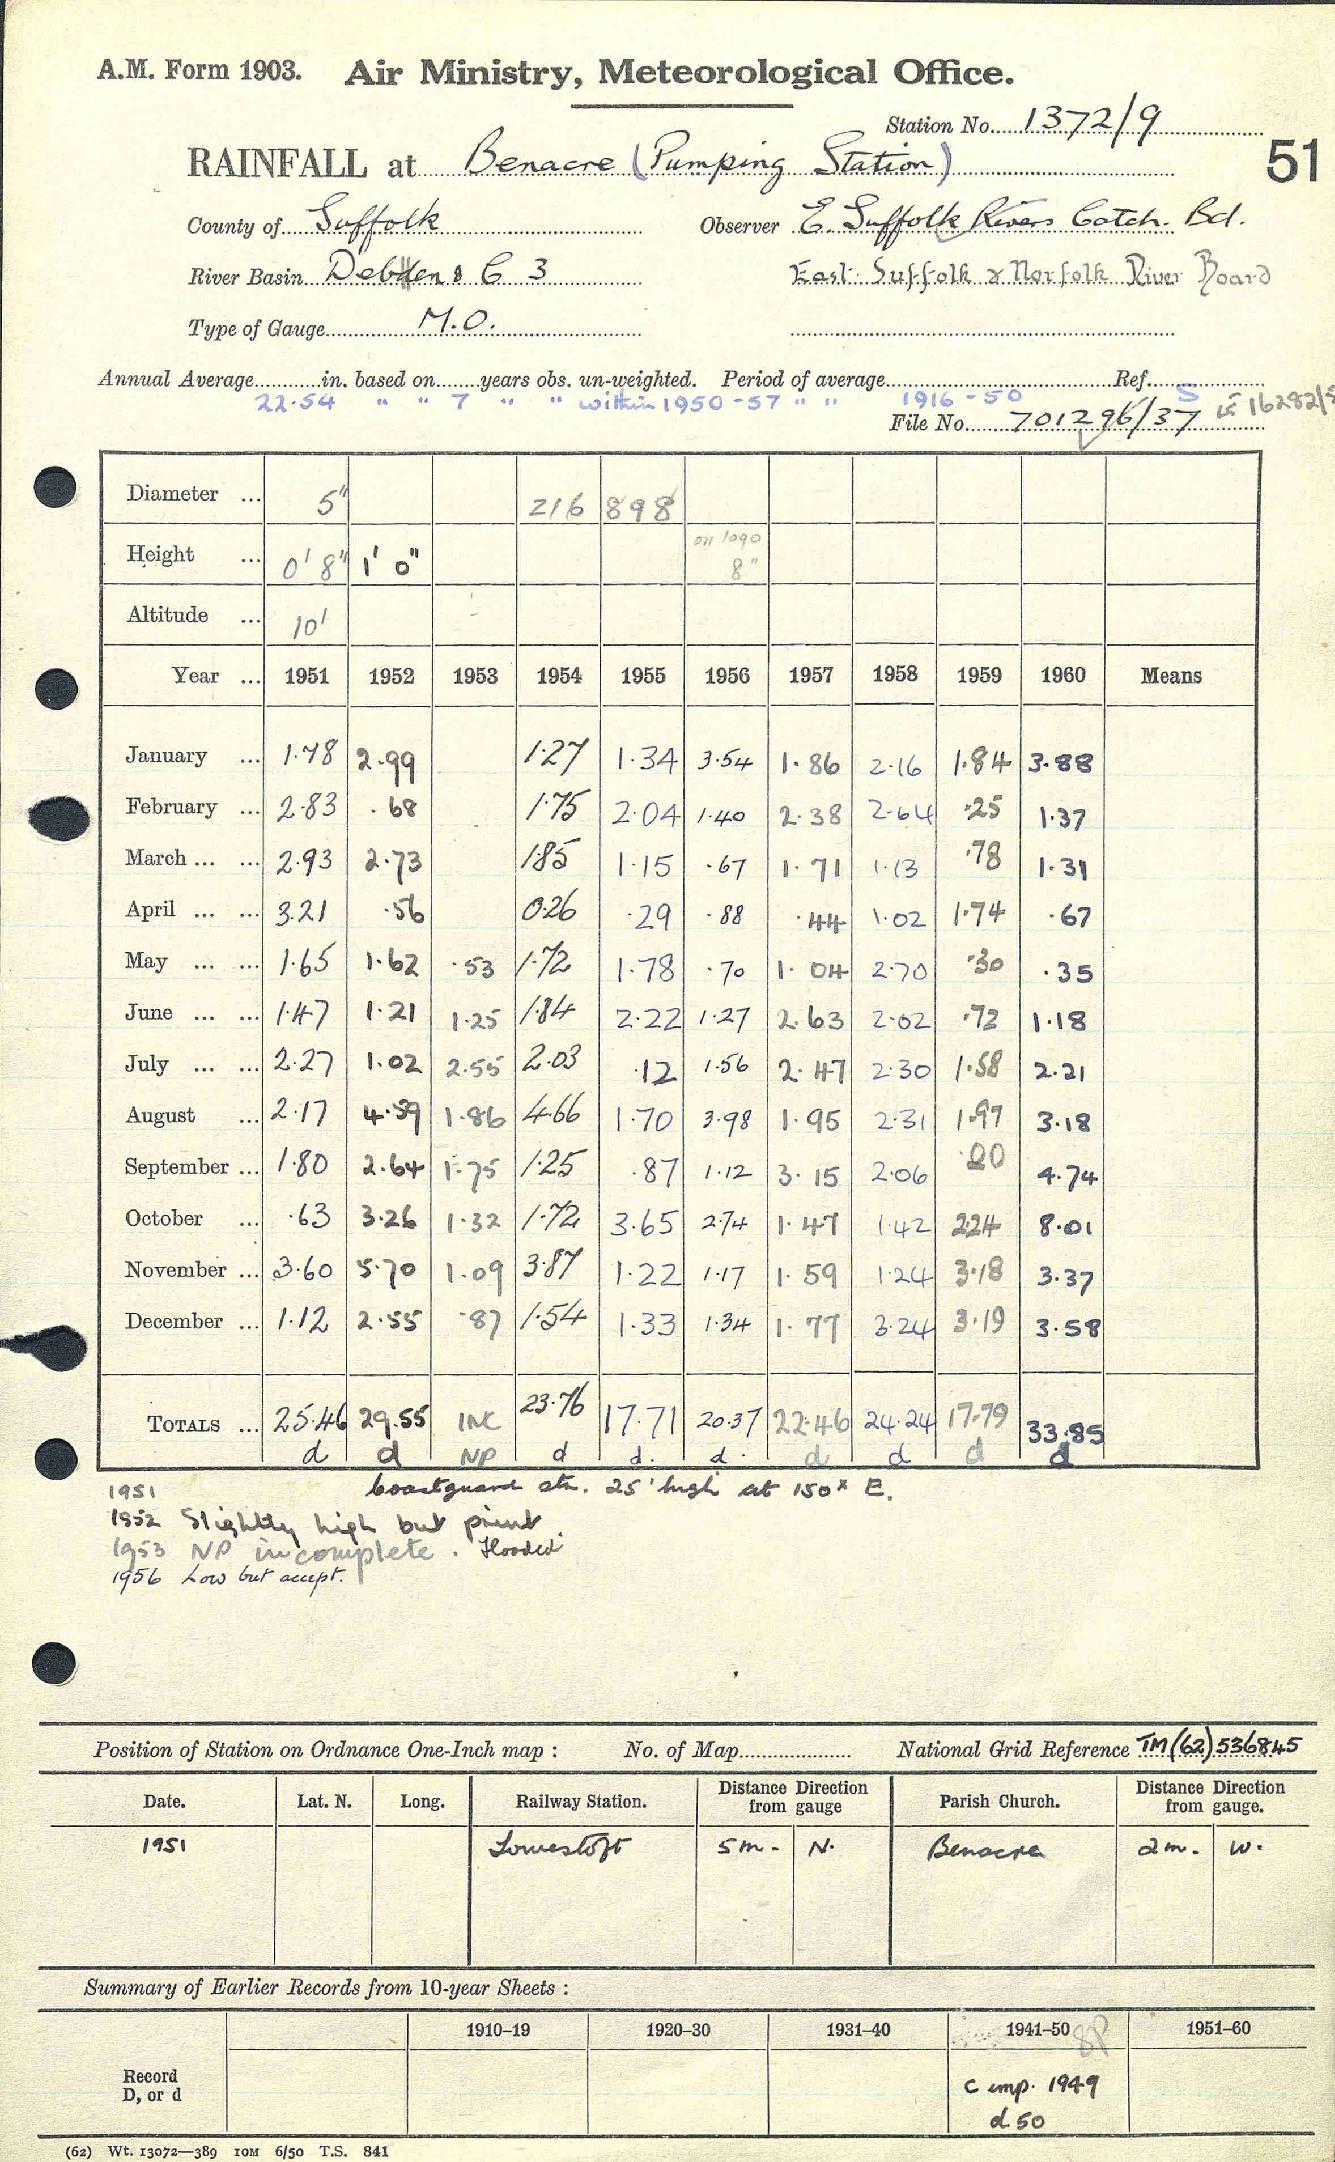 A.M. Form 1903. Air Ministry, Meteorological Office.
Station No. 1372/9
RAINFALL at Benacre (Pumping Station) 51
County of Suffolk Observer E. Suffolk Rivers Catch. Bd.
River Basin C 3 East Suffolk & Norfolk River Board
Type of Gauge M.O.
Annual Average in. based on years obs. un-weighted. Period of average Ref.
22.54 " " 7 " " within 1950-57 " " 1916-50 S
File No. 701296/37
Diameter ... 5" 216 898
Height ... 0' 8" 1' 0" 8"
Altitude ... 10'
Year ... 1951 1952 1953 1954 1955 1956 1957 1958 1959 1960 Means
January ... 1.78 2.99 1.27 1.34 3.54 1.86 2.16 1.84 3.88
February ... 2.83 .68 1.75 2.04 1.40 2.38 2.64 .25 1.37
March ... ... 2.93 2.73 1.85 1.15 .67 1.71 1.13 .78 1.31
April ... ... 3.21 .56 0.26 .29 .88 .44 1.02 1.74 .67
May ... ... 1.65 1.62 .53 1.72 1.78 .70 1.04 2.70 .30 .35
June ... ... 1.47 1.21 1.25 1.84 2.22 1.27 2.63 2.02 .72 1.18
July ... ... 2.27 1.02 2.55 2.03 .12 1.56 2.47 2.30 1.58 2.21
August ... 2.17 4.59 1.86 4.66 1.70 3.98 1.95 2.31 1.97 3.18
September ... 1.80 2.64 1.75 1.25 .87 1.12 3.15 2.06 .20 4.74
October ... .63 3.26 1.32 1.72 3.65 2.74 1.47 1.42 2.24 8.01
November ... 3.60 5.70 1.09 3.87 1.22 1.17 1.59 1.24 3.18 3.37
December ... 1.12 2.55 .87 1.54 1.33 1.34 1.77 3.24 3.19 3.58
TOTALS ... 25.46 29.55 INC 23.76 17.71 20.37 22.46 24.24 17.79 33.85
d d NP d d. d. d d d d
1951 Coastguard stn. 25' high at 150x E.
1952 Slightly high but print
1953 NP incomplete. Flooded
1956 Low but accept.
Position of Station on Ordnance One-Inch map : No. of Map National Grid Reference TM(62)536845
Date. Lat. N. Long. Railway Station. Distance Direction from gauge Parish Church. Distance Direction from gauge.
1951 Lowestoft 5m. N. Benacre 2m. W.
Summary of Earlier Records from 10-year Sheets :
1910–19 1920–30 1931–40 1941–50 1951–60
Record D, or d
C imp. 1949
d 50
(62) Wt. 13072—389 10M 6/50 T.S. 841